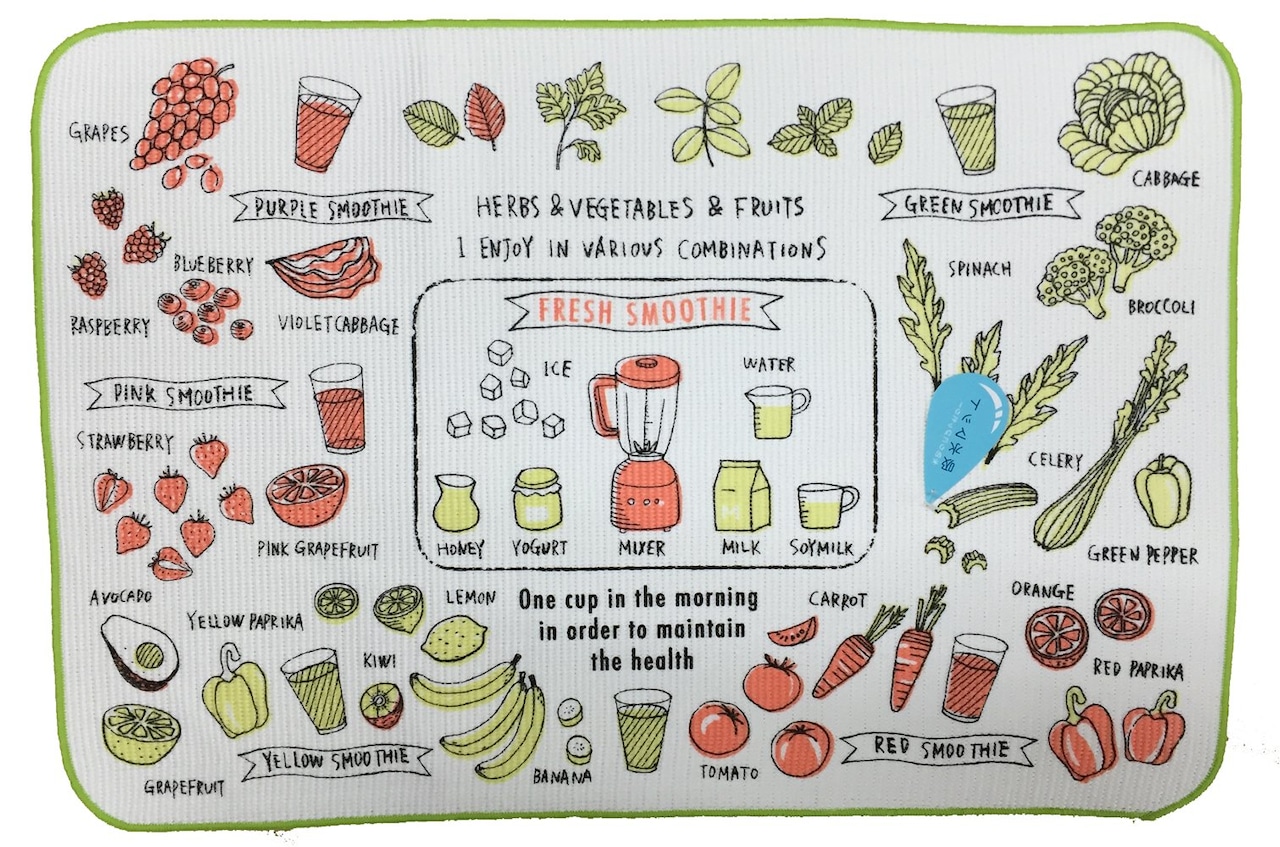 GRAPES
PURPLE SMOOTHIE
HERBS & VEGETABLES & FRUITS
I ENJOY IN VARIOUS COMBINATIONS
GREEN SMOOTHIE
CABBAGE
BLUEBERRY
RASPBERRY
VIOLETCABBAGE
SPINACH
BROCCOLI
FRESH SMOOTHIE
ICE
WATER
HONEY
YOGURT
MIXER
MILK
SOYMILK
M
PINK SMOOTHIE
STRAWBERRY
PINK GRAPEFRUIT
吸水マット
CELERY
GREEN PEPPER
AVOCADO
YELLOW PAPRIKA
LEMON
KIWI
GRAPEFRUIT
YELLOW SMOOTHIE
BANANA
One cup in the morning
in order to maintain
the health
CARROT
ORANGE
RED PAPRIKA
TOMATO
RED SMOOTHIE